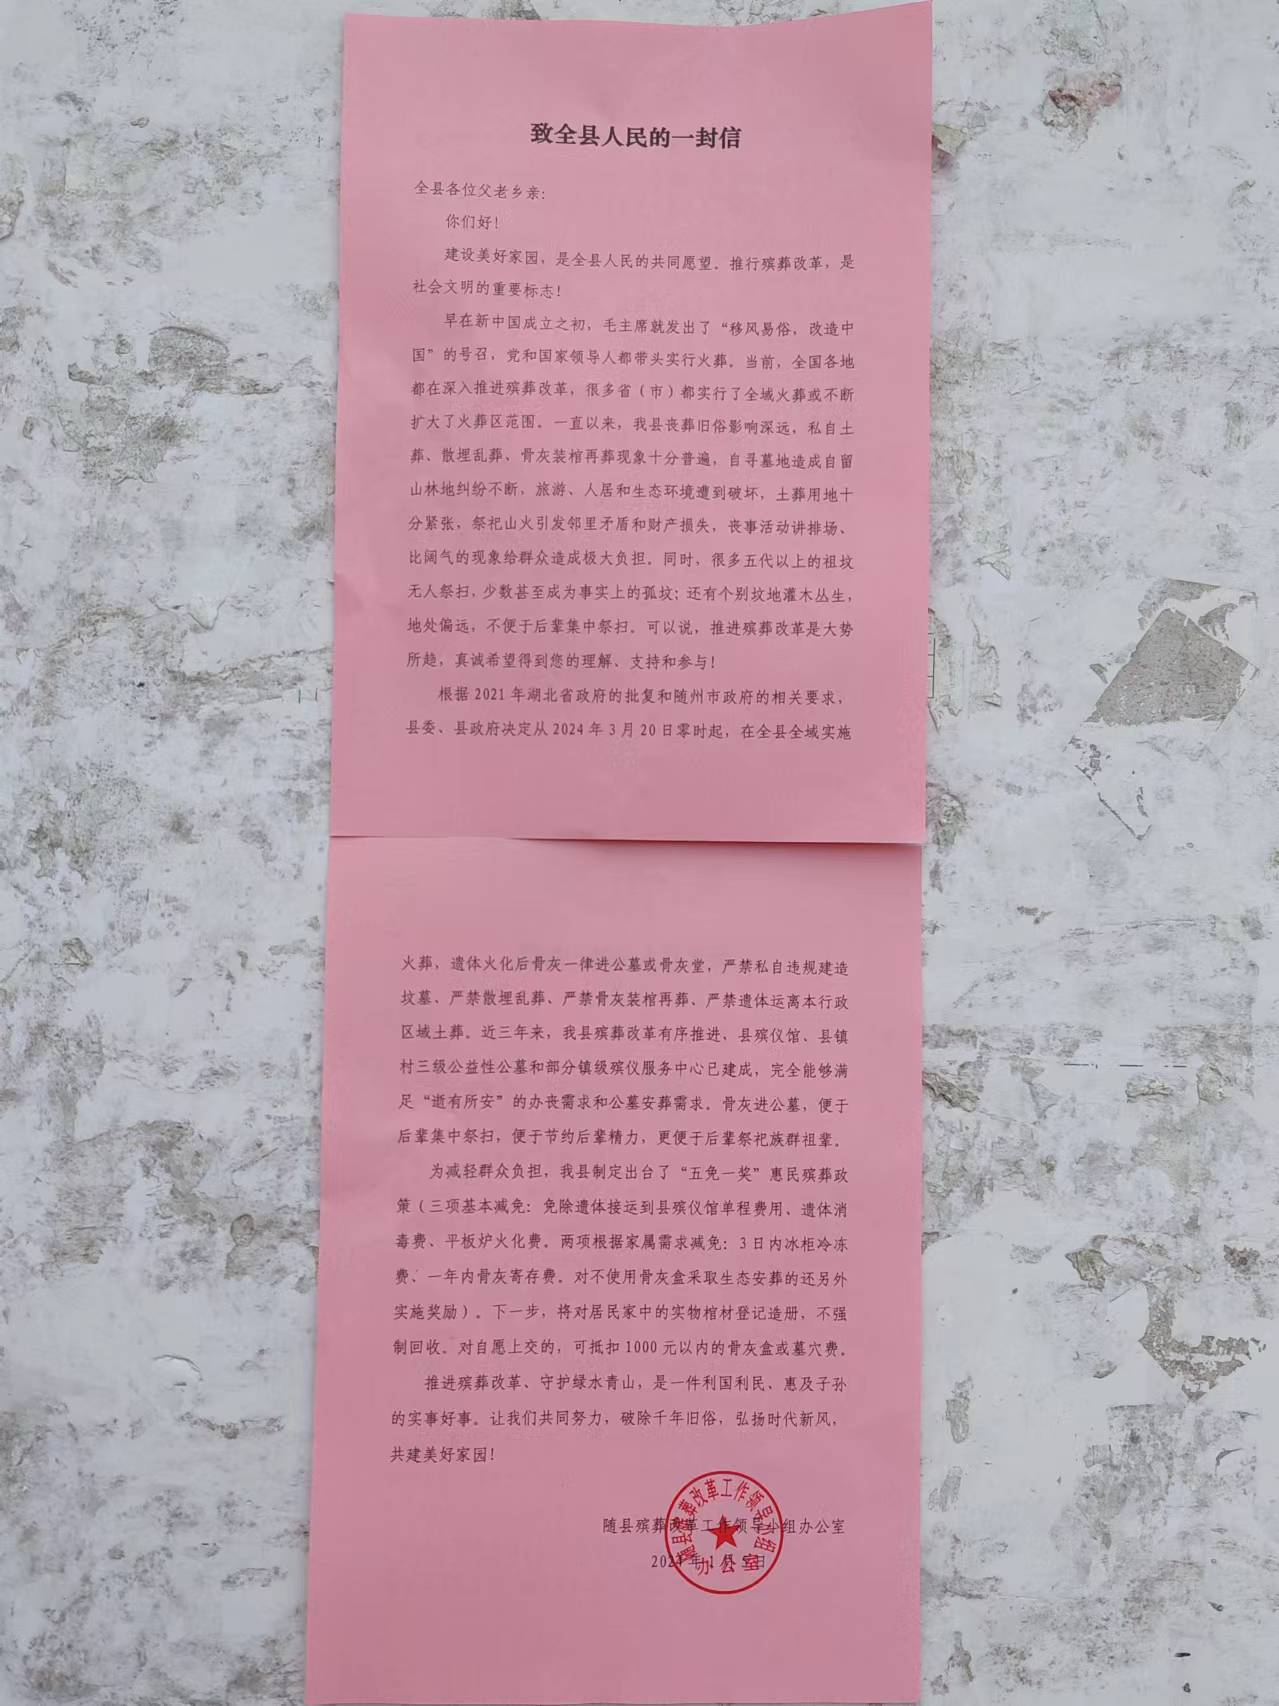 致全县人民的一封信
全县各位父老乡亲：
你们好！
建设美好家园，是全县人民的共同愿望。推行殡葬改革，是
社会文明的重要标志！
早在新中国成立之初，毛主席就发出了“移风易俗，改造中
国”的号召，党和国家领导人都带头实行火葬。当前，全国各地
都在深入推进殡葬改革，很多省（市）都实行了全域火葬或不断
扩大了火葬区范围。一直以来，我县丧葬旧俗影响深远，私自土
葬、散埋乱葬、骨灰装棺再葬现象十分普遍，自寻墓地造成自留
山林地纠纷不断，旅游、人居和生态环境遭到破坏，土葬用地十
分紧张，祭祀山火引发邻里矛盾和财产损失，丧事活动讲排场、
比阔气的现象给群众造成极大负担。同时，很多五代以上的祖坟
无人祭扫，少数甚至成为事实上的孤坟；还有个别坟地灌木丛生，
地处偏远，不便于后辈集中祭扫。可以说，推进殡葬改革是大势
所趋，真诚希望得到您的理解、支持和参与！
根据 2021 年湖北省政府的批复和随州市政府的相关要求，
县委、县政府决定从 2024 年 3 月 20 日零时起，在全县全域实施
火葬，遗体火化后骨灰一律进公墓或骨灰堂，严禁私自违规建造
坟墓、严禁散埋乱葬、严禁骨灰装棺再葬、严禁遗体运离本行政
区域土葬。近三年来，我县殡葬改革有序推进，县殡仪馆、县镇
村三级公益性公墓和部分镇级殡仪服务中心已建成，完全能够满
足“逝有所安”的办丧需求和公墓安葬需求。骨灰进公墓，便于
后辈集中祭扫，便于节约后辈精力，更便于后辈祭祀族群祖辈。
为减轻群众负担，我县制定出台了“五免一奖”惠民殡葬政
策（三项基本减免：免除遗体接运到县殡仪馆单程费用、遗体消
毒费、平板炉火化费。两项根据家属需求减免：3 日内冰柜冷冻
费、一年内骨灰寄存费。对不使用骨灰盒采取生态安葬的还另外
实施奖励）。下一步，将对居民家中的实物棺材登记造册，不强
制回收。对自愿上交的，可抵扣 1000 元以内的骨灰盒或墓穴费。
推进殡葬改革、守护绿水青山，是一件利国利民、惠及子孙
的实事好事。让我们共同努力，破除千年旧俗，弘扬时代新风，
共建美好家园！
随县殡葬改革工作领导小组办公室
2024 年 1 月 5 日
随县殡葬改革工作领导小组
办公室